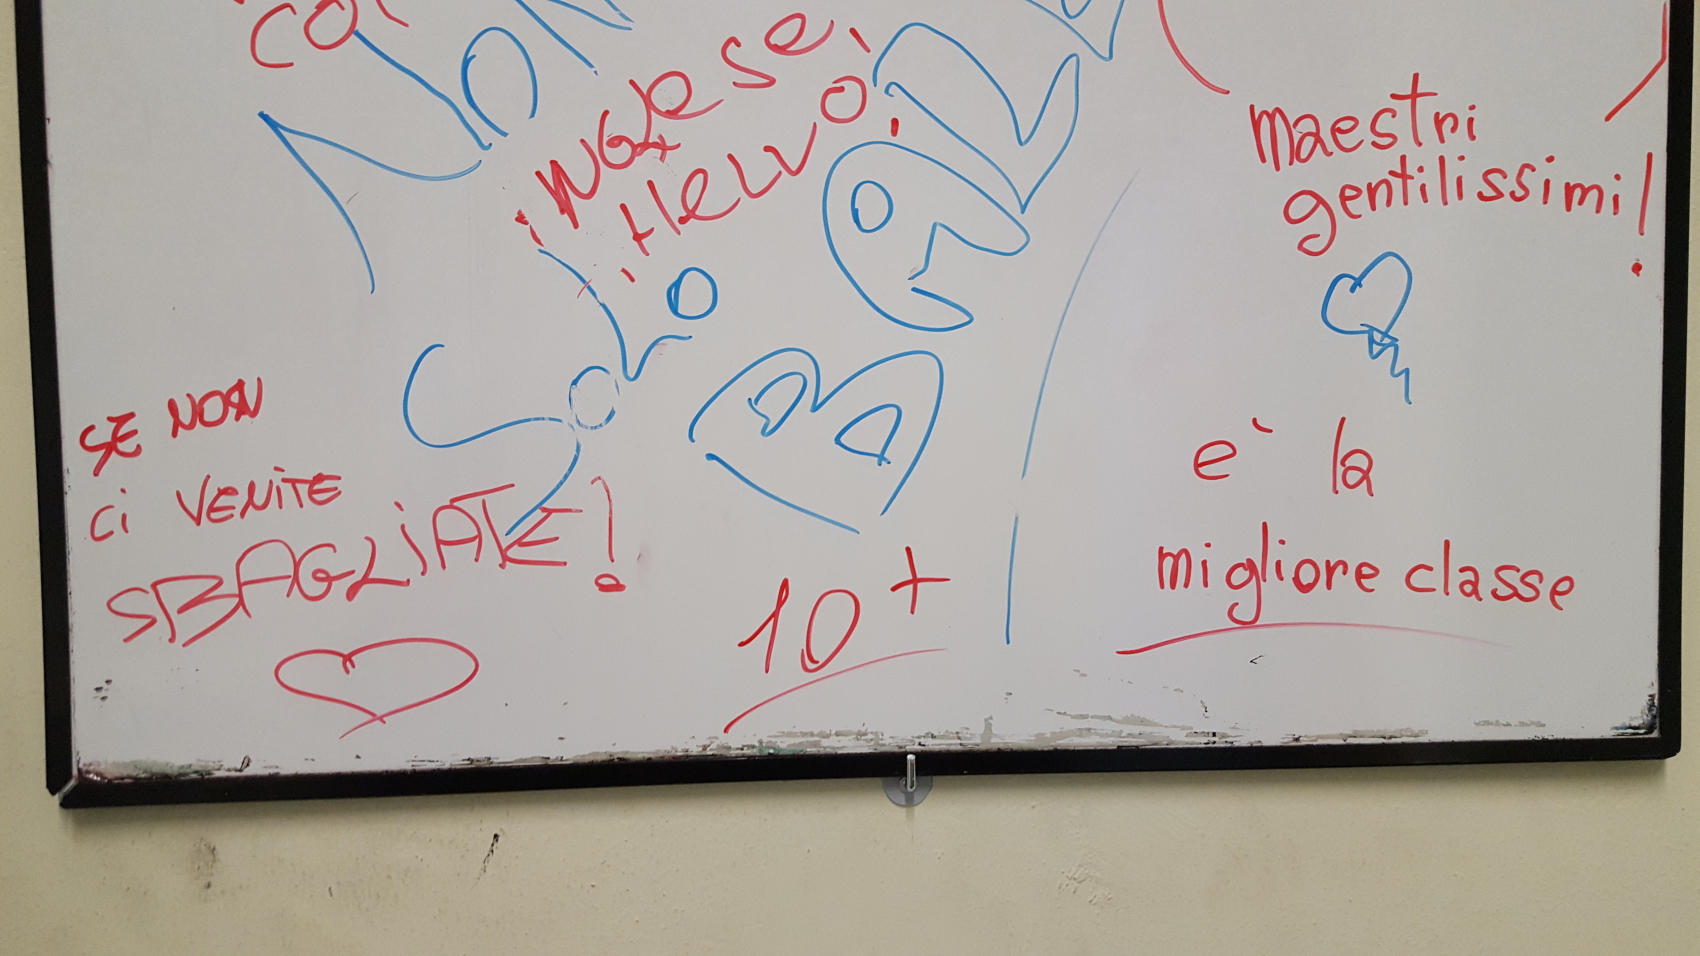 CO
NON
iNGLese
Hello
SOLO
SE NON
Ci VENiTE
SBAGLiATE!
10+
maestri
gentilissimi!
e` la
migliore classe